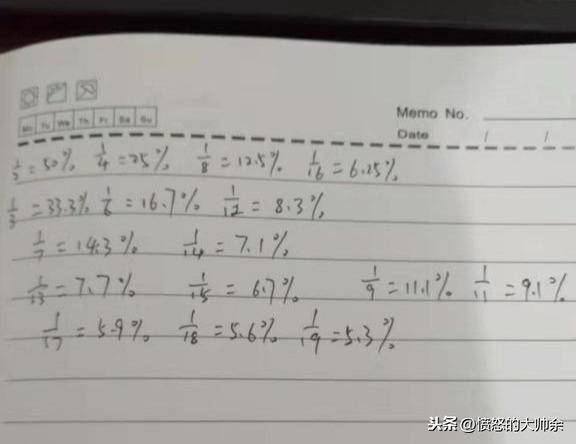 Memo No.
Mo Tu We Th Fr Sa Su
Date / /
1/2 = 50% 1/4 = 25% 1/8 = 12.5% 1/16 = 6.25%
1/3 = 33.3% 1/6 = 16.7% 1/12 = 8.3%
1/7 = 14.3% 1/14 = 7.1%
1/13 = 7.7% 1/15 = 6.7% 1/9 = 11.1% 1/11 = 9.1%
1/17 = 5.9% 1/18 = 5.6% 1/19 = 5.3%
头条 @愤怒的大帅余